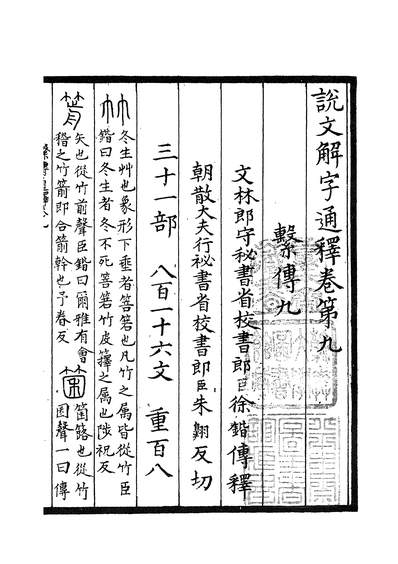 說文解字通釋卷第九
繫傳九
文林郎守祕書省校書郎臣徐鍇傳釋
朝散大夫行祕書省校書郎臣朱翶反切
三十一部 八百一十六文 重百八
竹 冬生艸也象形下垂者箁箬也凡竹之屬皆從竹臣
鍇曰冬生者冬不死箁箬竹皮籜之屬也陟祝反
箭 矢也從竹前聲臣鍇曰爾雅有會
稽之竹箭即合箭幹也反
箘 箘簬也從竹
囷聲一曰博